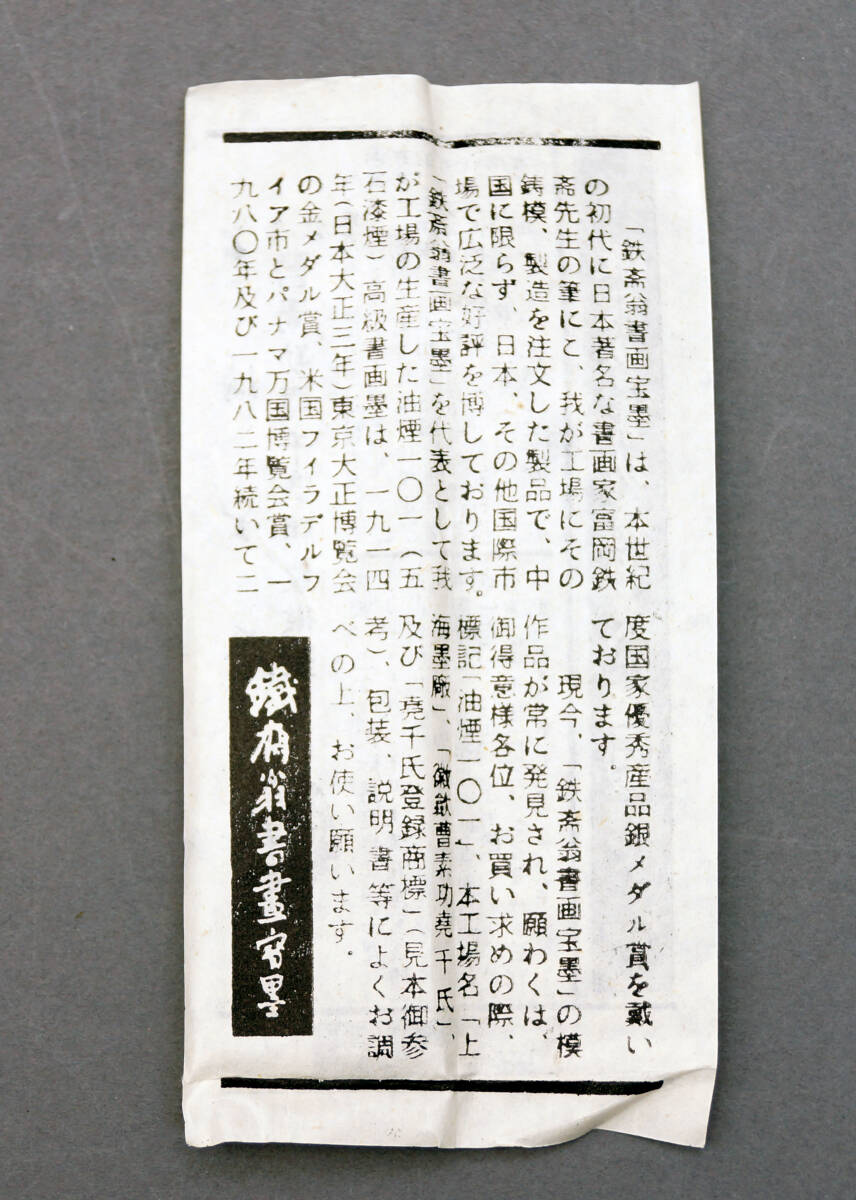 「鉄斎翁書画宝墨」は、本世紀
の初代に日本著名な書画家富岡鉄
斎先生の筆にと、我が工場にその
鋳模、製造を注文した製品で、中
国に限らず、日本、その他国際市
場で広泛な好評を博しております。
「鉄斎翁書画宝墨」を代表として我
が工場の生産した油煙一〇一(五
石漆煙)高級書画墨は、一九一四
年(日本大正三年)東京大正博覧会
の金メダル賞、米国フィラデルフ
イア市とパナマ万国博覧会賞、一
九八〇年及び一九八二年続いて二
度国家優秀産品銀メダル賞を戴い
ております。
現今、「鉄斎翁書画宝墨」の模
作品が常に発見され、願わくは、
御得意様各位、お買い求めの際、
標記「油煙一〇一」、本工場名「上
海墨廠」、「徽歙曹素功堯千氏」、
及び「堯千氏登録商標」(見本御参
考)、包装、説明書等によくお調
べの上、お使い願います。
鐵齋翁書畫寶墨